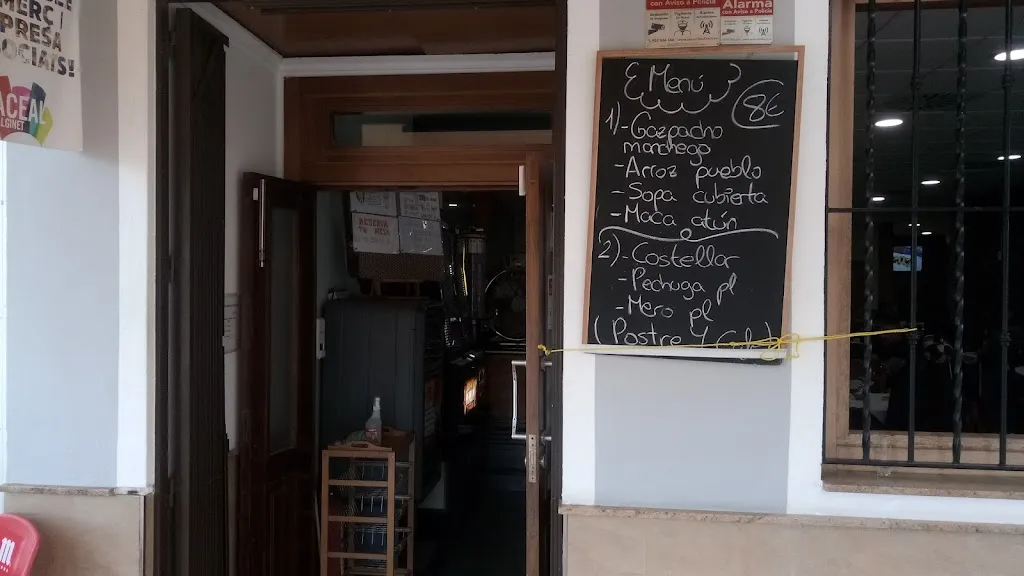 MERÇ I
PRESA
OCIAIS!
ACEAL
LGINET
con Aviso a Policía
Alarma
con Aviso a Policía
Menú
8€
1) - Gazpacho
manchego
- Arroz pueblo
- Sopa cubierta
- Maca atún
2) - Costellar
- Pechuga pl
- Mero pl
(Postre